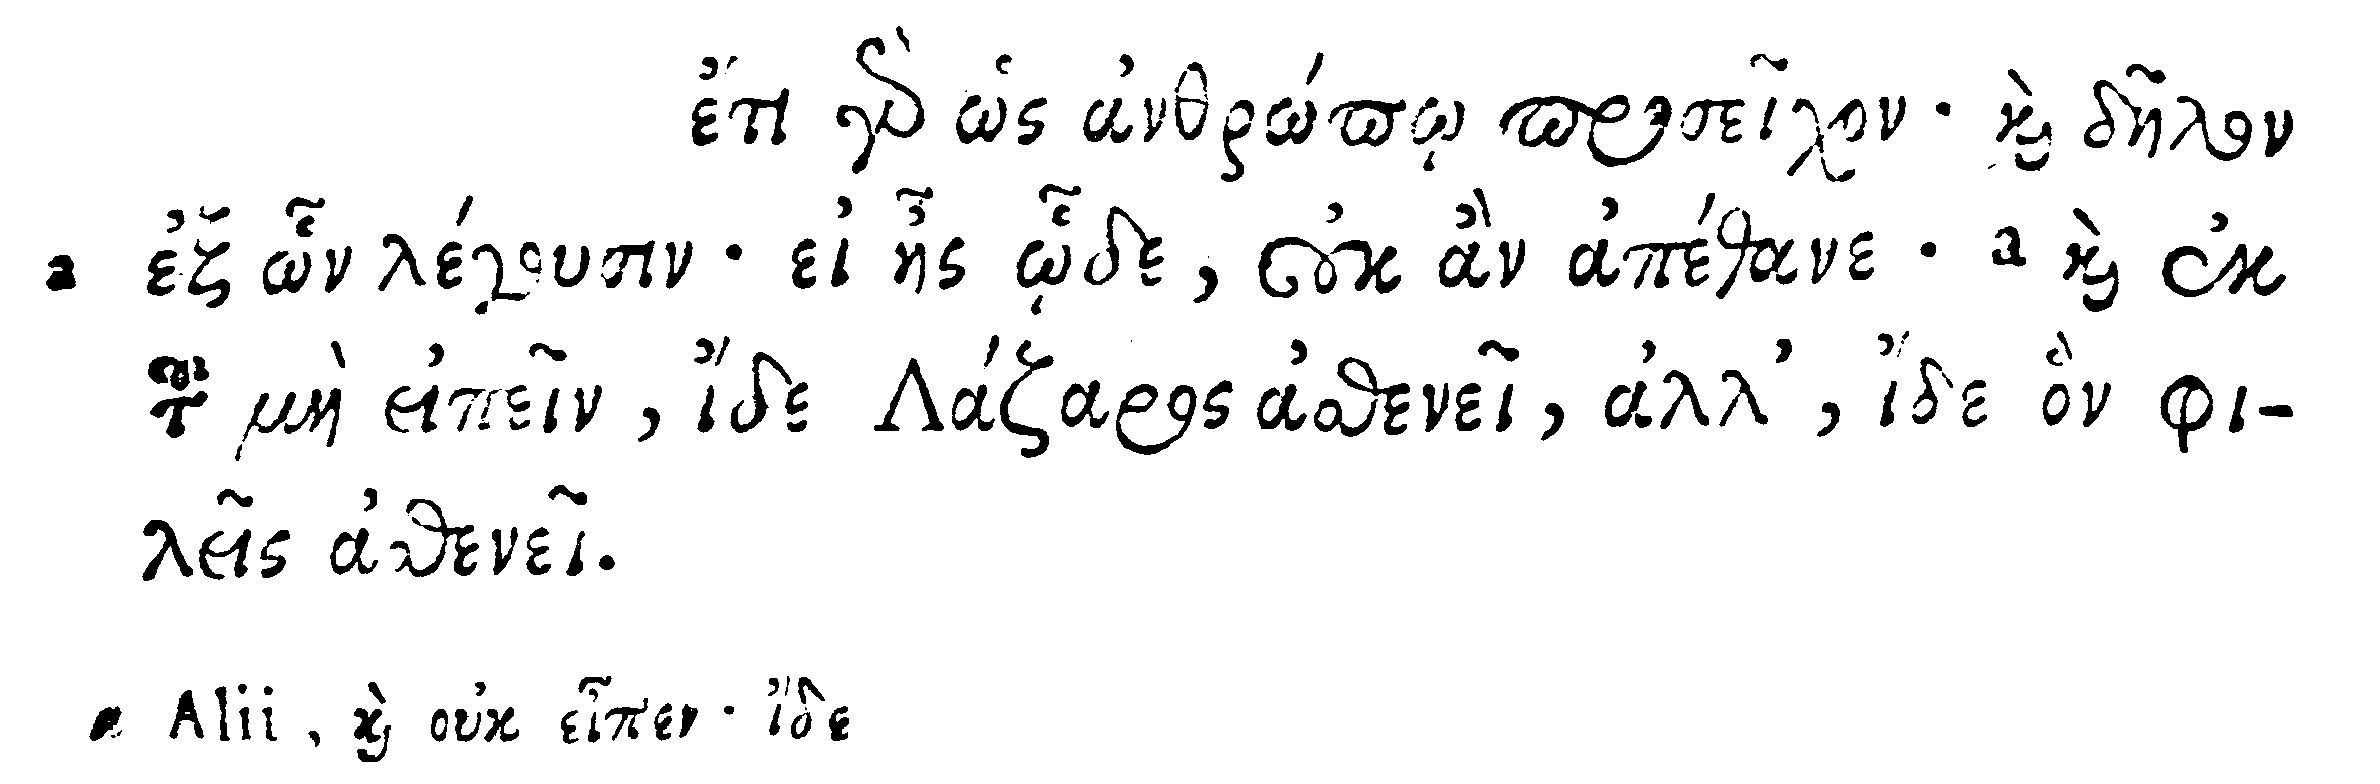 ἔτι γὰρ ὡς ἀνθρώπῳ προσεῖχον· καὶ δῆλον
a ἐξ ὧν λέγουσιν· εἰ ἦς ᾧδε, οὐκ ἂν ἀπέθανε· a καὶ ἐκ
τοῦ μὴ εἰπεῖν, ἴδε Λάζαρος ἀσθενεῖ, ἀλλ', ἴδε ὃν φι-
λεῖς ἀσθενεῖ.
a Alii, καὶ οὐκ εἶπεν· ἴδε